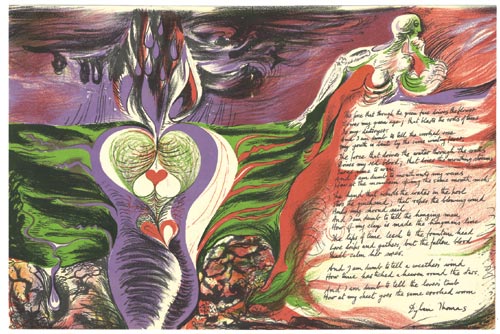 The force that through the green fuse drives the flower
Drives my green age; that blasts the roots of trees
Is my destroyer.
And I am dumb to tell the crooked rose
My youth is bent by the same wintry fever.
The force that drives the water through the rocks
Drives my red blood; that dries the mouthing streams
Turns mine to wax.
And I am dumb to mouth unto my veins
How at the mountain spring the same mouth sucks.
The hand that whirls the water in the pool
Stirs the quicksand; that ropes the blowing wind
Hauls my shroud sail.
And I am dumb to tell the hanging man
How of my clay is made the hangman's lime.
The lips of time leech to the fountain head
Love drips and gathers, but the fallen blood
Shall calm her sores.
And I am dumb to tell a weather's wind
How time has ticked a heaven round the stars.
And I am dumb to tell the lover's tomb
How at my sheet goes the same crooked worm
Dylan Thomas